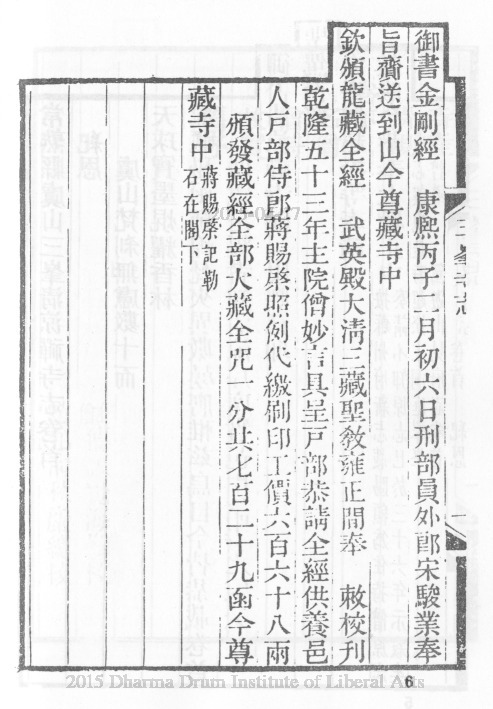 御書金剛經　康熙丙子二月初六日刑部員外郎宋駿業奉
旨齎送到山今尊藏寺中
欽頒龍藏全經　武英殿大清三藏聖敎雍正間奉　敕校刊
乾隆五十三年主院僧妙言具呈戸部恭請全經供養邑
人戸部侍郎蔣賜棨照例代繳刷印工價六百六十八兩
頒發藏經全部大藏全咒一分共七百二十九函今尊
藏寺中蔣賜棨記勒
石在閣下
三峯寺志
一
6
2015 Dharma Drum Institute of Liberal Arts